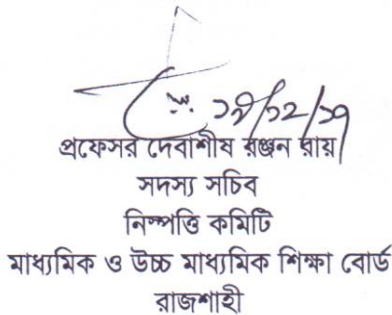 প্রফেসর দেবাশীষ রঞ্জন রায়
সদস্য সচিব
নিষ্পত্তি কমিটি
মাধ্যমিক ও উচ্চ মাধ্যমিক শিক্ষা বোর্ড
রাজশাহী